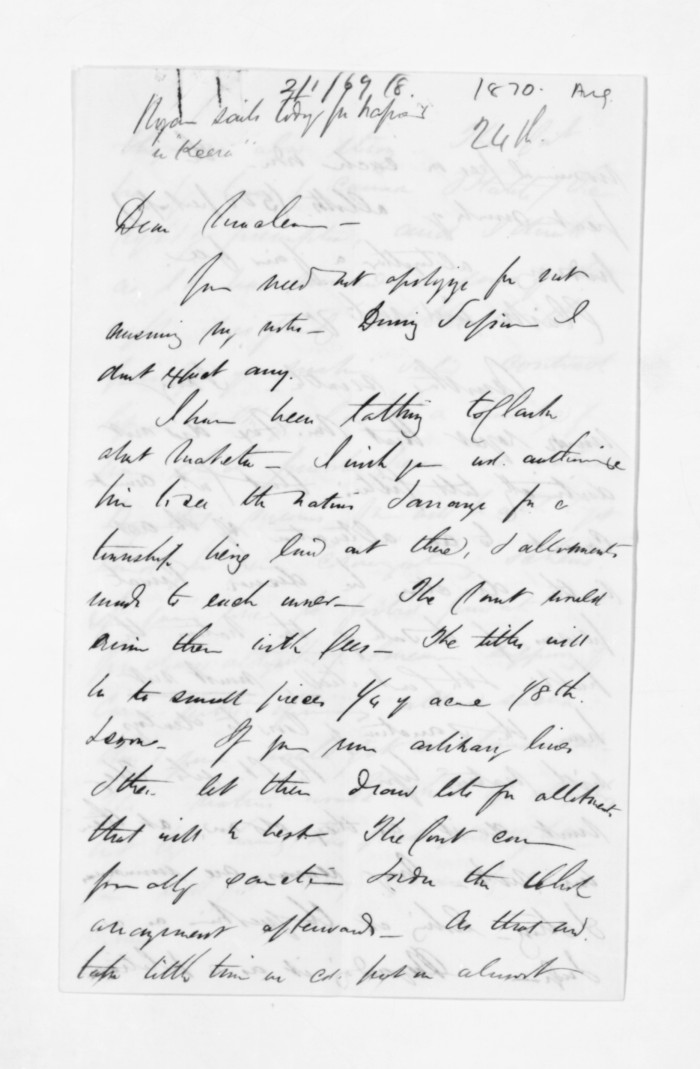 2/1/69 18. 1870. Aug.
24th.
sails today for Napier
in "Keera"
Dear McLean –
You need not apologize for not
answering my notes – During Session I
dont expect any.
I have been talking to Clarke
about Maketu – I wish you wd. authorise
him to see the natives & arrange for a
township being laid out there, & allotments
made to each owner – The Court would
them with fees – The titles will
be to small pieces 1/4 of acre 1/8th.
& so on – If you run arbitrary lines
& then let them draw lots for allotments
that will be best – The Court can
formally sanction & order the whole
arrangement afterwards – As that wd.
take little time we cd. put on almost